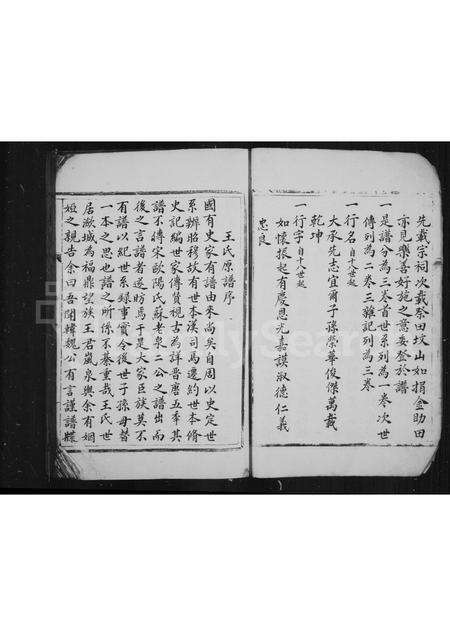 先載宗祠次載祭田坟山如捐金助田
亦見樂善好施之意妥登於譜
一是譜分為三卷首世系列為一卷次世
傳列為二卷三雜記列為三卷
一行名自十八世起
大承先志宜爾子孫榮華俊傑萬載
乾坤
一行字自十八世起
如懷振起有慶恩光嘉謨淑德仁義
忠良
王氏原譜序
國有史家有譜由來尚矣自周以史定世
系辨昭穆故有世本漢司馬遷約世本脩
史記編世家傳贊視古為詳晋唐五季其
譜不傳宋歐陽氏蘇老泉二公之譜出而
後之言譜者遂昉焉于是大家臣族莫不
有譜以紀世系録事實令後世子孫毋替
一本之思也譜之所係不綦重哉王氏世
居潋城為福鼎望族王君嵐泉與余有姻
婭之親告余曰吾聞韓魏公有言謹譜牒